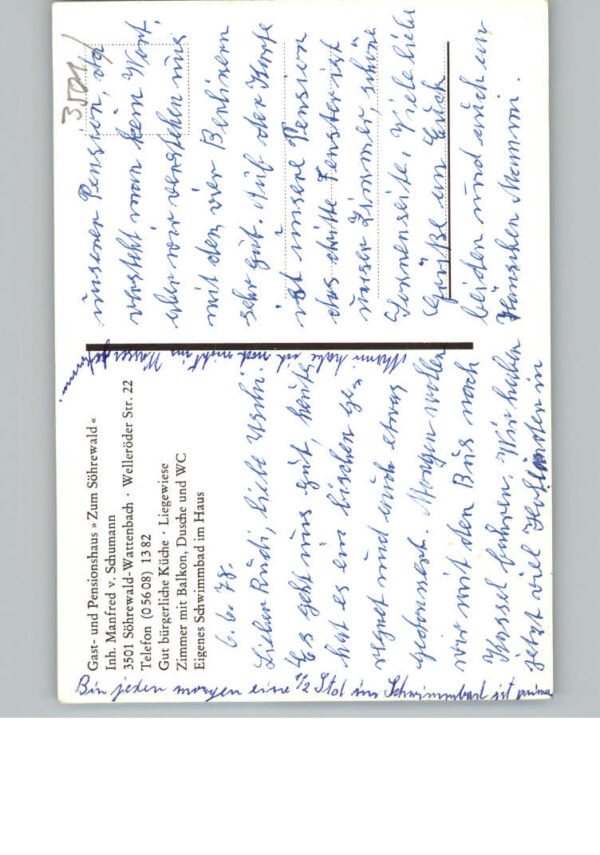 Gast- und Pensionshaus » Zum Söhrewald «
Inh. Manfred v. Schumann
3501 Söhrewald-Wattenbach · Welleröder Str. 22
Telefon (0 56 08) 13 82
Gut bürgerliche Küche · Liegewiese
Zimmer mit Balkon, Dusche und WC
Eigenes Schwimmbad im Haus
6.6.78.
Lieber Rudi, liebe Uschi.
Es geht uns gut, heute
hat es ein bischen ge-
regnet und auch etwas
gedonnert. Morgen wollen
wir mit den Bus nach
Kassel fahren. Wir haben
jetzt viel Holländer in
unserer Pension, da
versteht man kein Wort,
aber wir verstehen uns
mit den vier Berlinern
sehr gut. Auf der Karte
ist unsere Pension
das dritte Fenster ist
unser Zimmer, schöne
Sonnenseite. Viele liebe
Grüße an Euch
beiden und auch an
Hänschen Mammi.
Bin jeden morgen eine 1/2 Std im Schwimmbad ist prima
Mami habe ich noch nicht im Wasser
3501